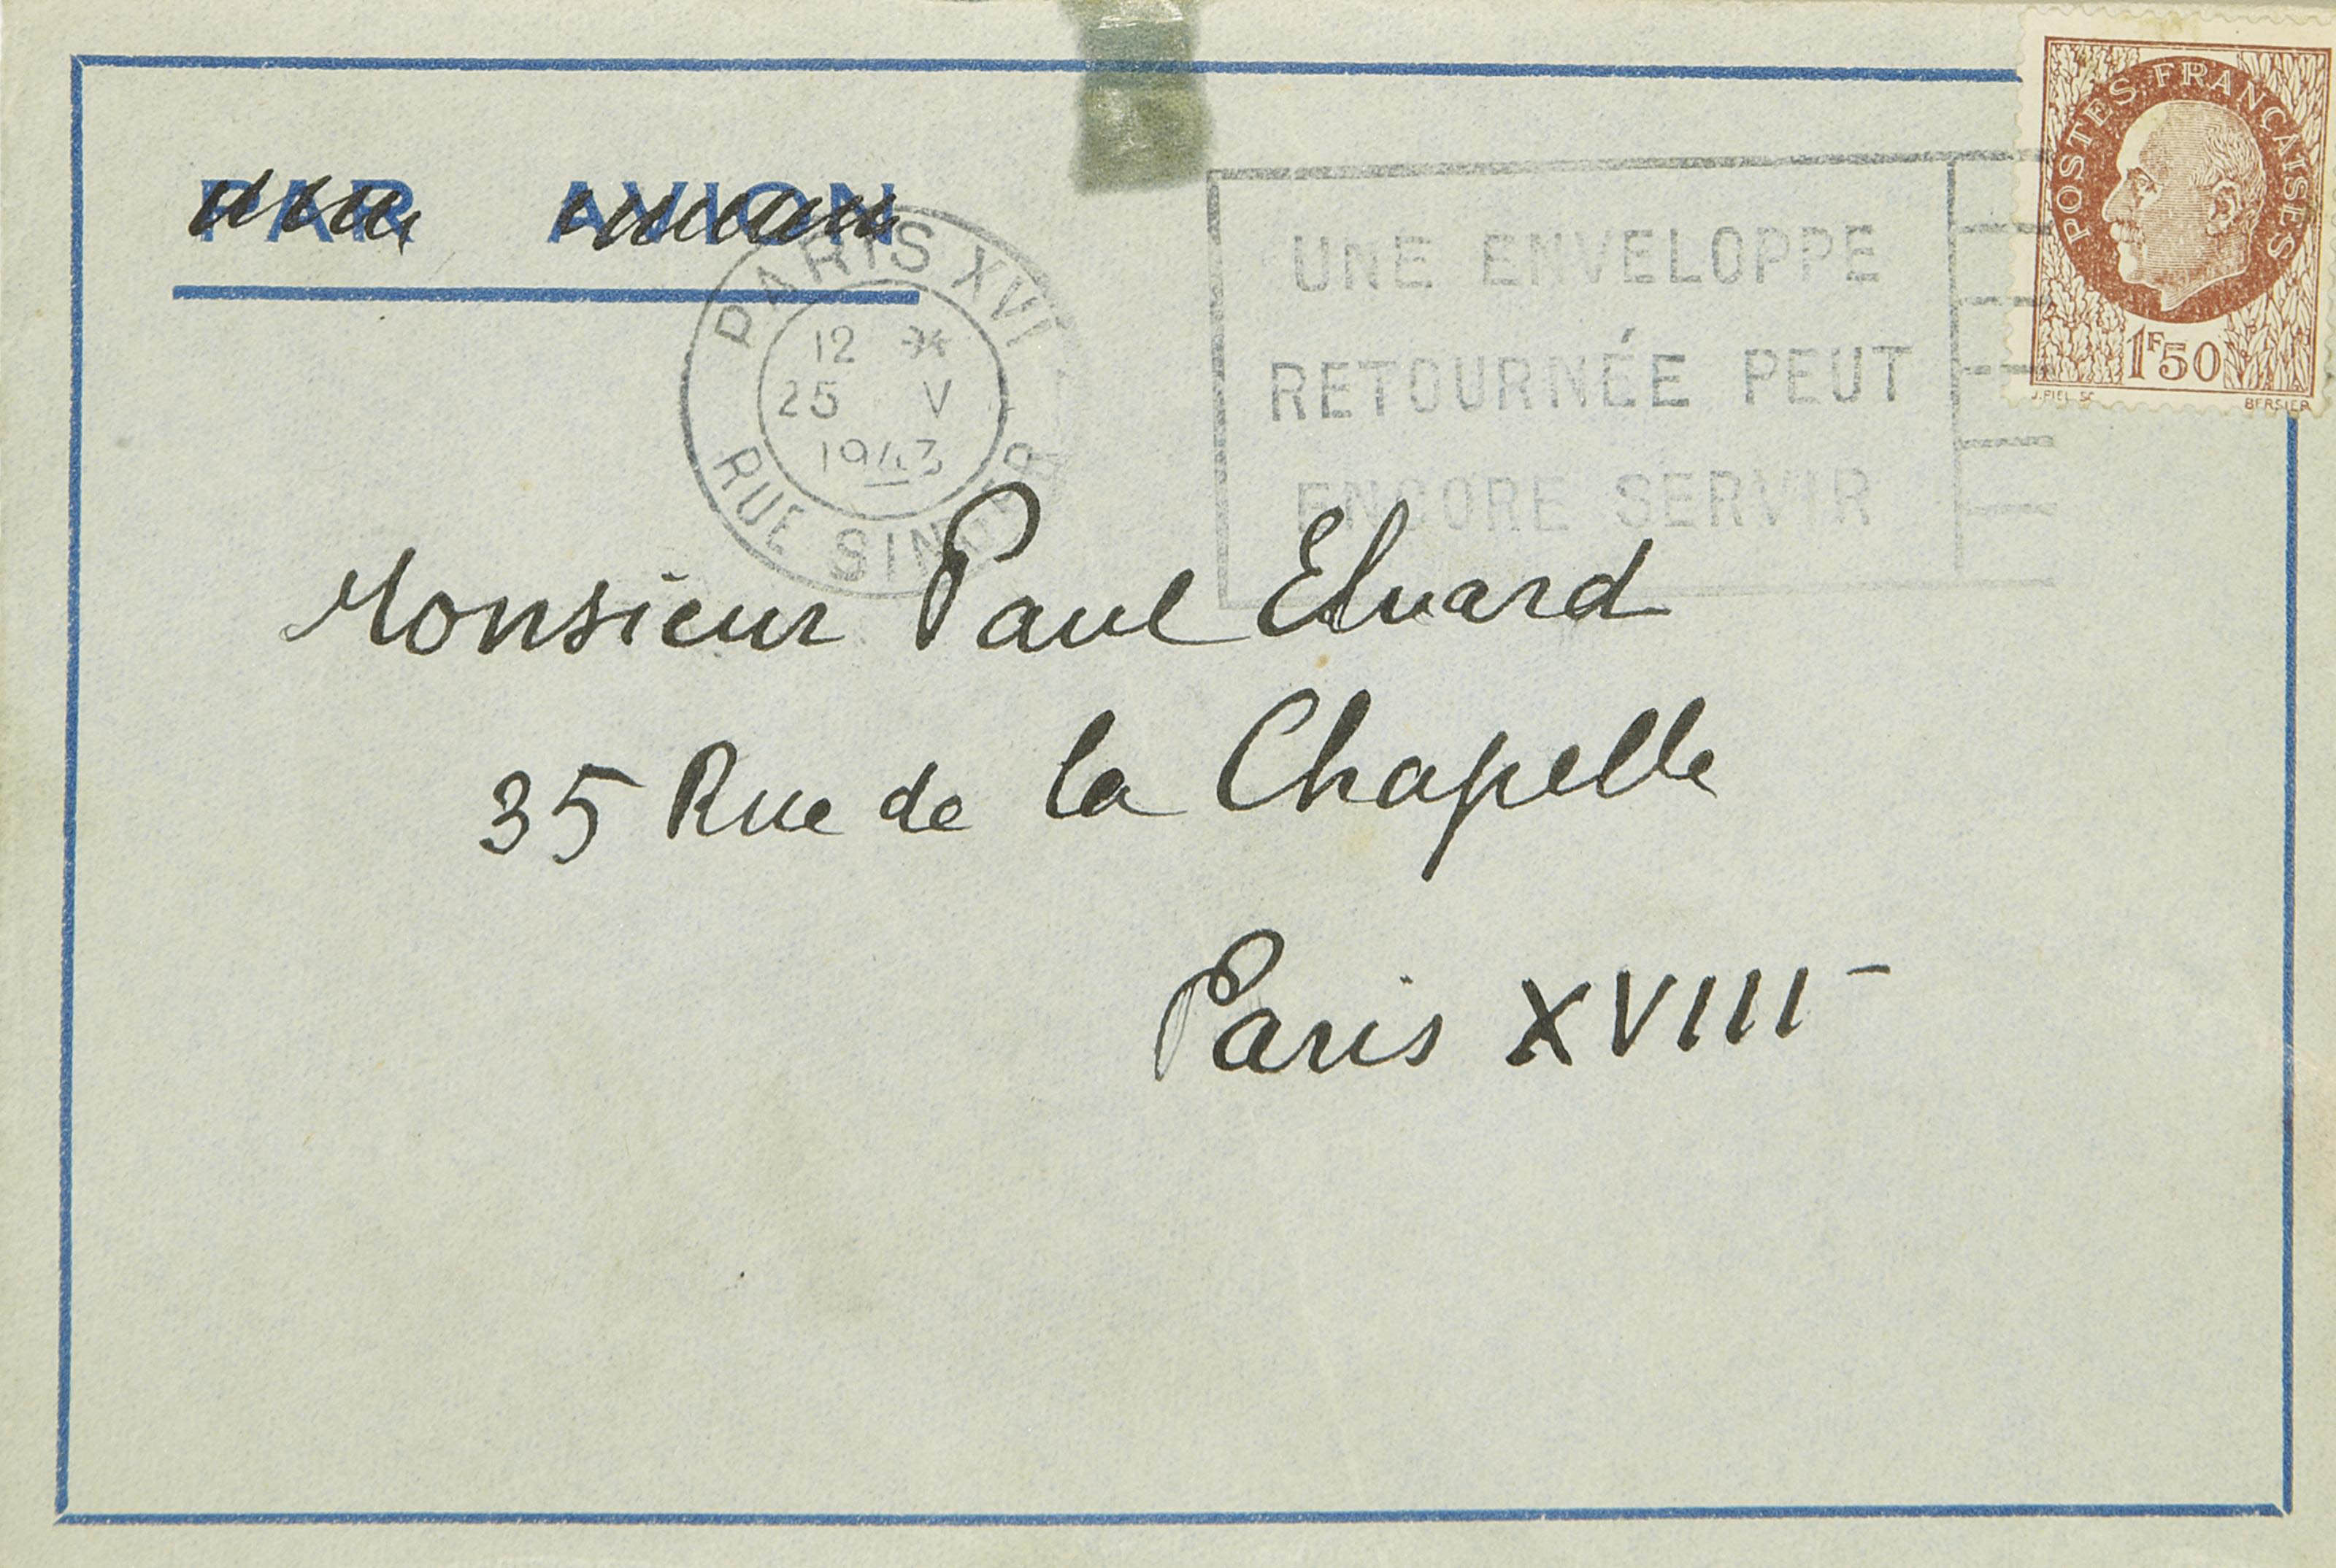 PAR AVION
PARIS XVI
12 *
25 V
1943
RUE SINGER
UNE ENVELOPPE
RETOURNÉE PEUT
ENCORE SERVIR
POSTES FRANÇAISES
1F50
J.PIEL SC
BERSIER
Monsieur Paul Eluard
35 Rue de la Chapelle
Paris XVIII -